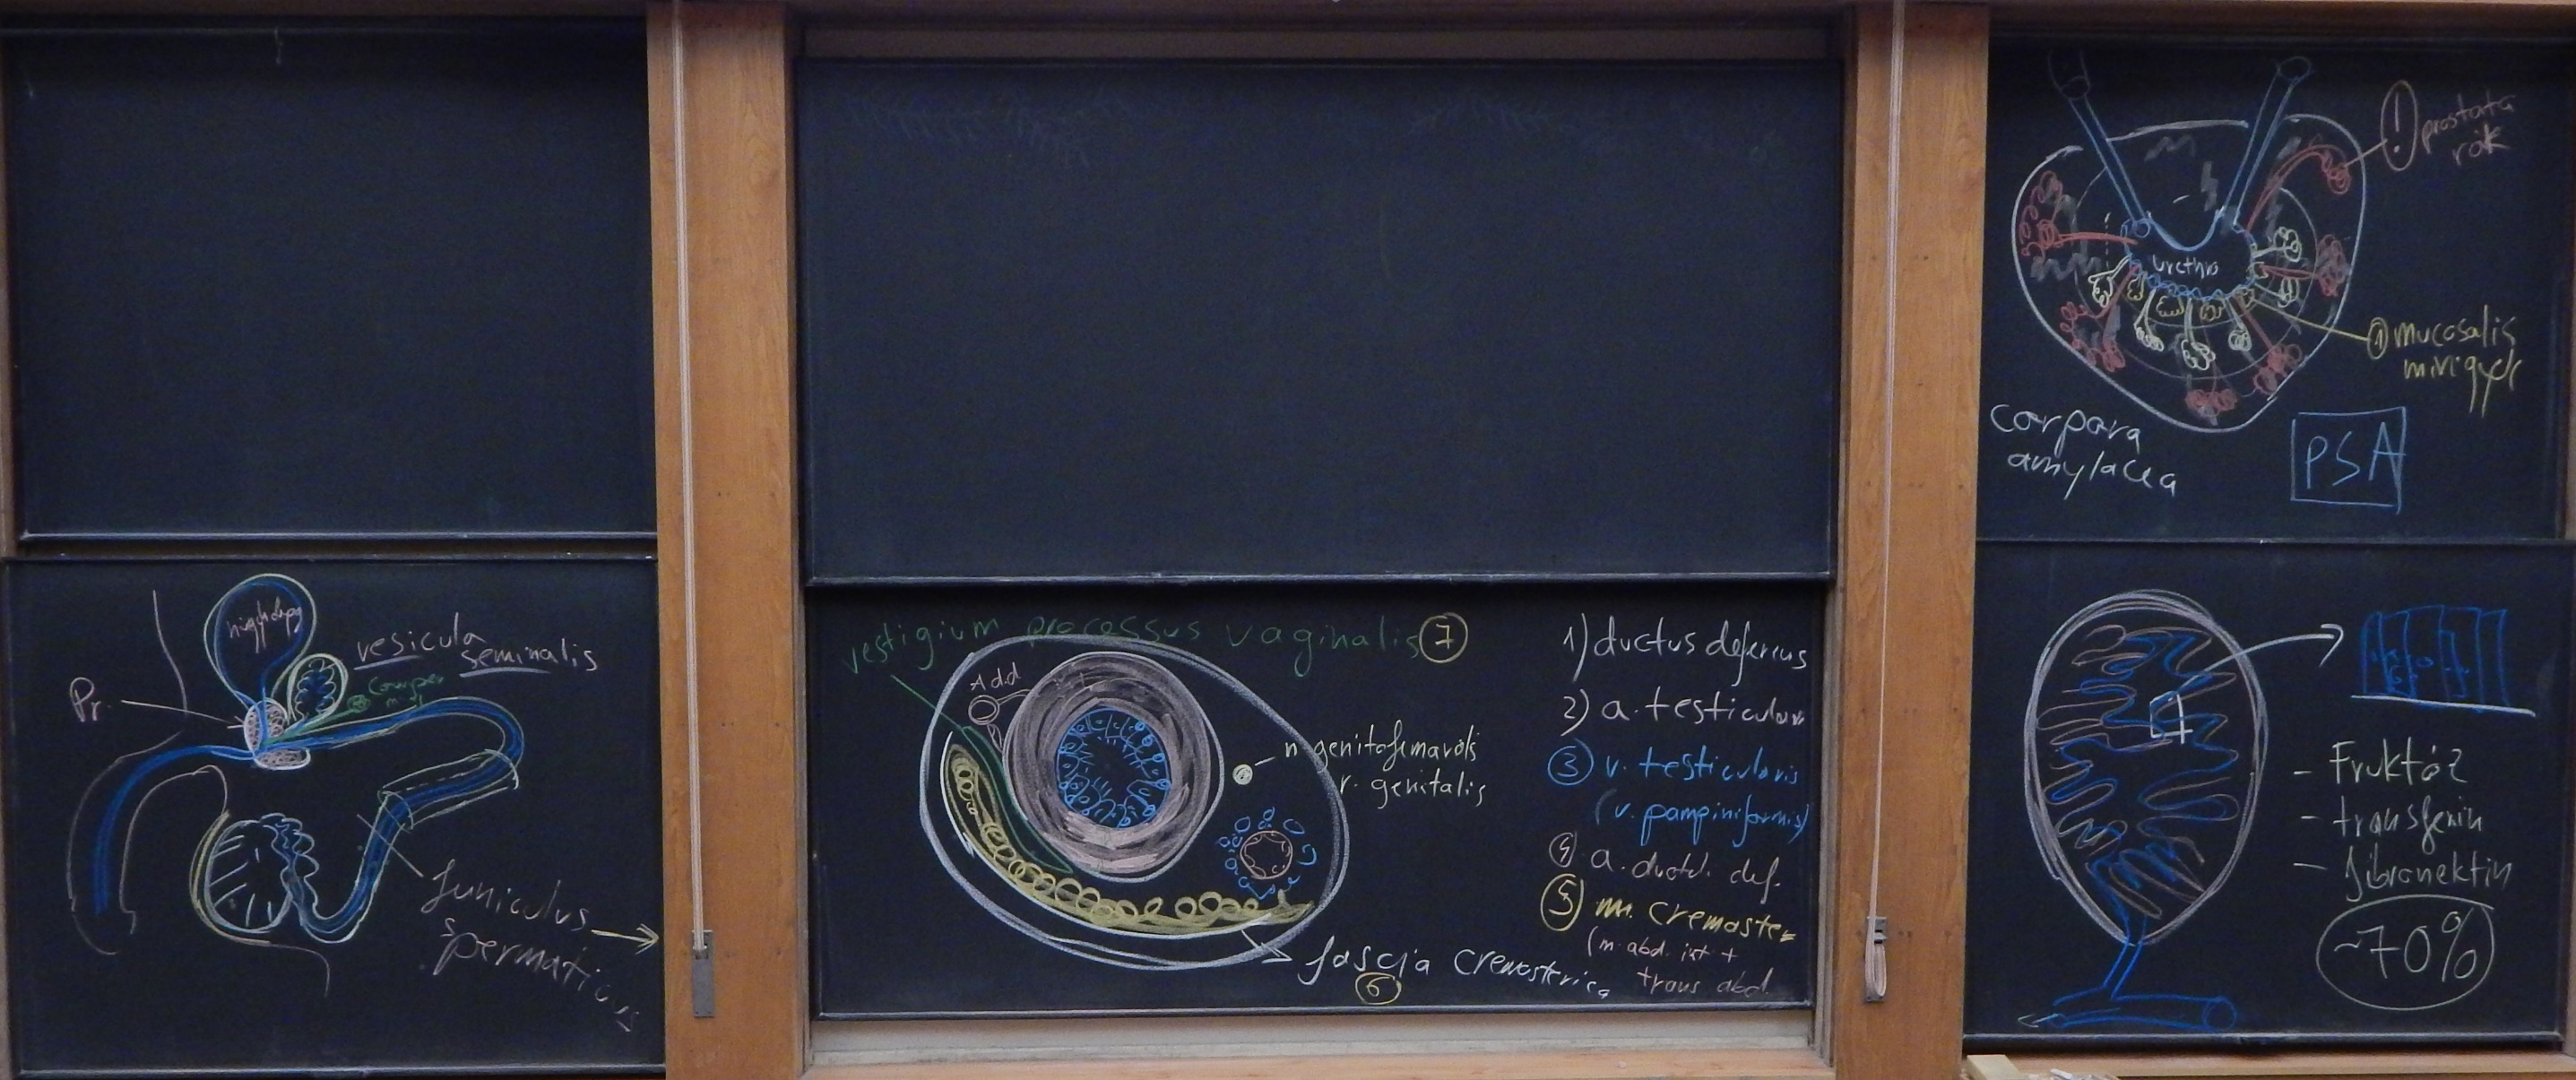 húgyhólyag
vesicula
seminalis
Cowper
m.
Pr.
funiculus
spermaticus
vestigium processus vaginalis 7
A.d.d
n. genitofemoralis
r. genitalis
fascia cremasterica
6
1) ductus deferens
2) a. testicularis
3 v. testicularis
(v. pampiniformis)
4 a. ducti. def.
5 m. cremaster
(m. abd. int +
trans abd.
! prostata
rák
urethra
1 mucosalis
mirigyek
corpora
amylacea
PSA
- Fruktóz
- transferrin
- fibronektin
~70%